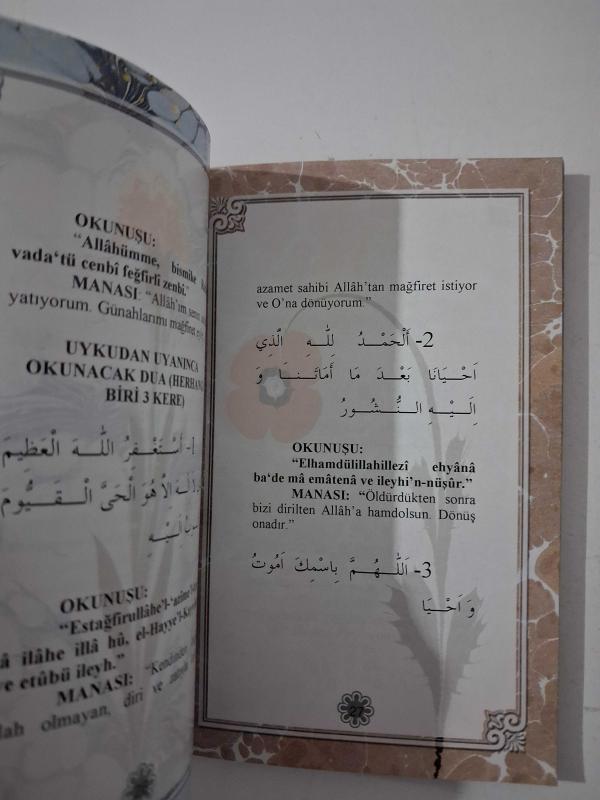 OKUNUŞU:
"Allâhümme, bismike
vada'tü cenbî feğfirlî zenbî."
MANASI: "Allâh'ım senin
yatıyorum. Günahlarımı mağfiret
UYKUDAN UYANINCA
OKUNACAK DUA (HERHANG
BİRİ 3 KERE)
1- اَسْتَغْفِرُ اللّٰهَ الْعَظِيمَ
اِلٰهَ اِلَّا هُوَ الْحَيَّ الْقَيُّومَ
اِلَيْهِ
OKUNUŞU:
"Estağfirullâhe'l-'azîme
â ilâhe illâ hû, el-Hayye'l-Kayy
ve etûbü ileyh."
MANASI: "Kendinden
lah olmayan, diri ve
azamet sahibi Allâh'tan mağfiret istiyor
ve O'na dönüyorum."
2- اَلْحَمْدُ لِلّٰهِ الَّذِي
اَحْيَانَا بَعْدَ مَا اَمَاتَنَا وَ
اِلَيْهِ النُّشُورُ
OKUNUŞU:
"Elhamdülillahillezî ehyânâ
ba'de mâ emâtenâ ve ileyhi'n-nüşûr."
MANASI: "Öldürdükten sonra
bizi dirilten Allâh'a hamdolsun. Dönüş
onadır."
3- اَللّٰهُمَّ بِاسْمِكَ اَمُوتُ
وَ اَحْيَا
27